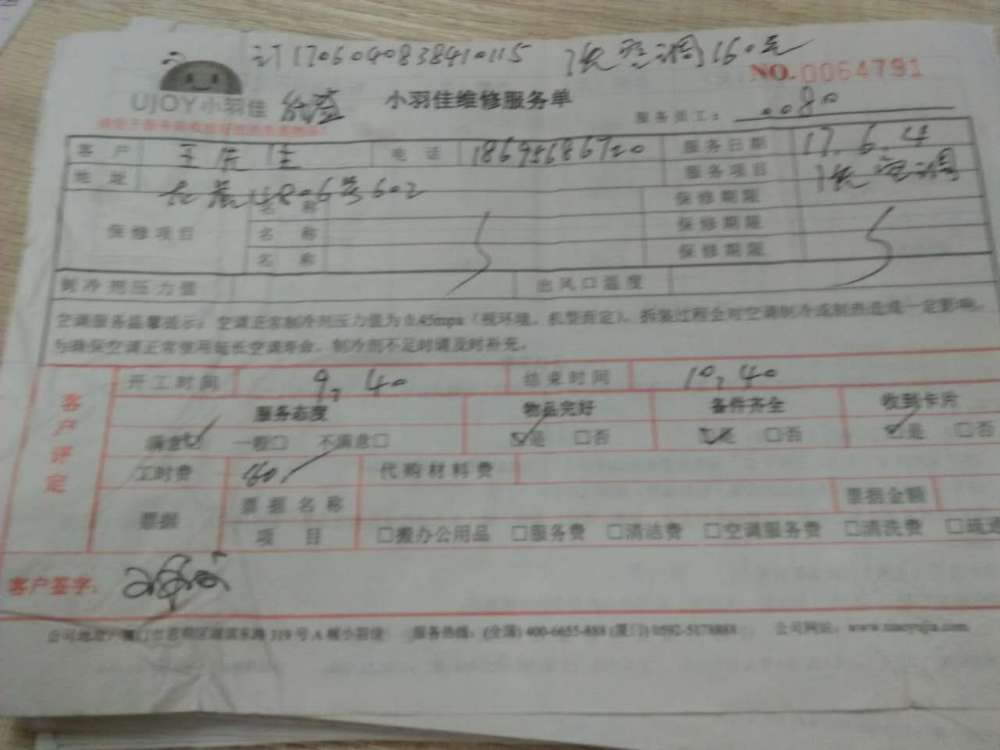 计1706040838410115 1洗空调160元
NO.0064791
UJOY小羽佳 小羽佳维修服务单
服务员工: 0080
客户 王先生 电话 服务日期 17.6.4
地址 服务项目 1洗空调
保修项目 名称 保修期限
名称 保修期限
名称 保修期限
制冷剂压力值 出风口温度
空调服务温馨提示:空调正常制冷剂压力值为0.45mpa(视环境、机型而定)。拆装过程会对空调制冷或制热造成一定影响。
为确保空调正常使用延长空调寿命,制冷剂不足时请及时补充。
客户评定
开工时间 9,40 结束时间 10,40
服务态度 物品完好 备件齐全 收到卡片
满意☑ 一般□ 不满意□ ☑是 □否 ☑是 □否 ☑是 □否
工时费 160. 代购材料费
票据 票据名称 票据金额
项目 □搬办公用品 □服务费 □清洁费 □空调服务费 □清洗费 □疏通
客户签字:
公司地址:厦门市思明区湖滨东路319号A栋小羽佳 服务热线:(全国)400-6655-888 (厦门)0592-5178888 公司网站:www.xiaoyujia.com